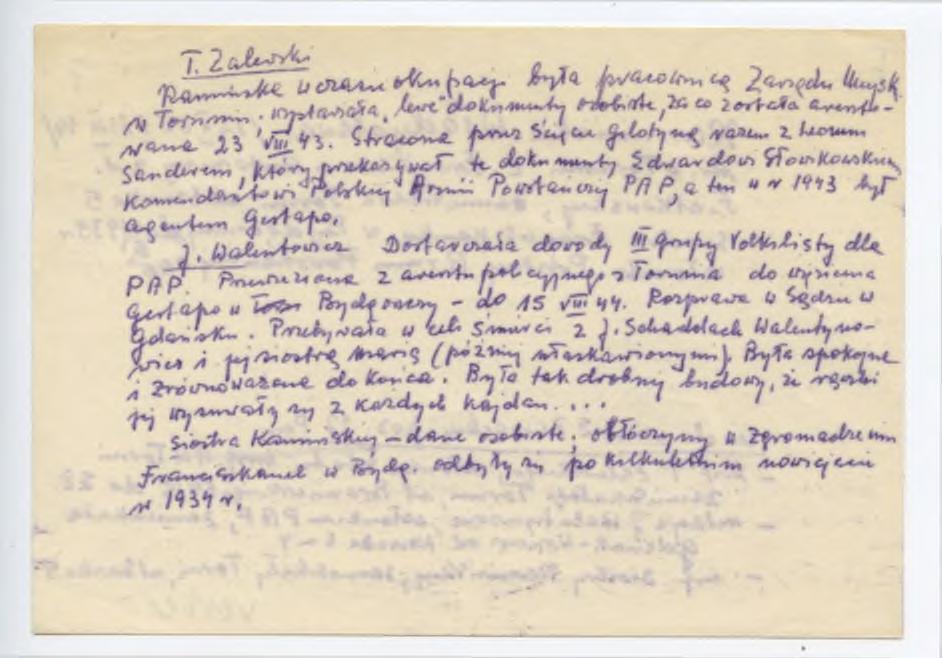 T. Zalewski
Kamińska w czasie okupacji była pracownicą Zarządu Miejsk.
w Toruniu; wystawiała „lewe" dokumenty osobiste, za co została areszto-
wana 23 VIII 43. Stracona przez ścięcie gilotyną razem z Leonem
Sanderem, który przekazywał te dokumenty Edwardowi Słowikowskiemu
Komendantowi Polskiej Armii Powstańczej PAP, a ten w r 1943 był
agentem Gestapo.
J. Walentowicz Dostarczała dowody III grupy Volkslisty dla
PAP. Przewieziona z aresztu policyjnego z Torunia do więzienia
Gestapo w Bydgoszczy – do 15 VIII 44. Rozprawa w Sądzie w
Gdańsku. Przebywała w celi śmierci z J. Schadelach Walentyno-
wicz i jej siostrą Marią (później ułaskawionymi). Była spokojna
i zrównoważona do końca. Była tak drobnej budowy, że rączki
jej wysuwały się z każdych kajdan....
Siostra Kamińskiej – dane osobiste; obłóczyny w Zgromadzeniu
Franciszkanek w Bydg. odbyły się po kilkuletnim nowicjacie
w 1934 r.